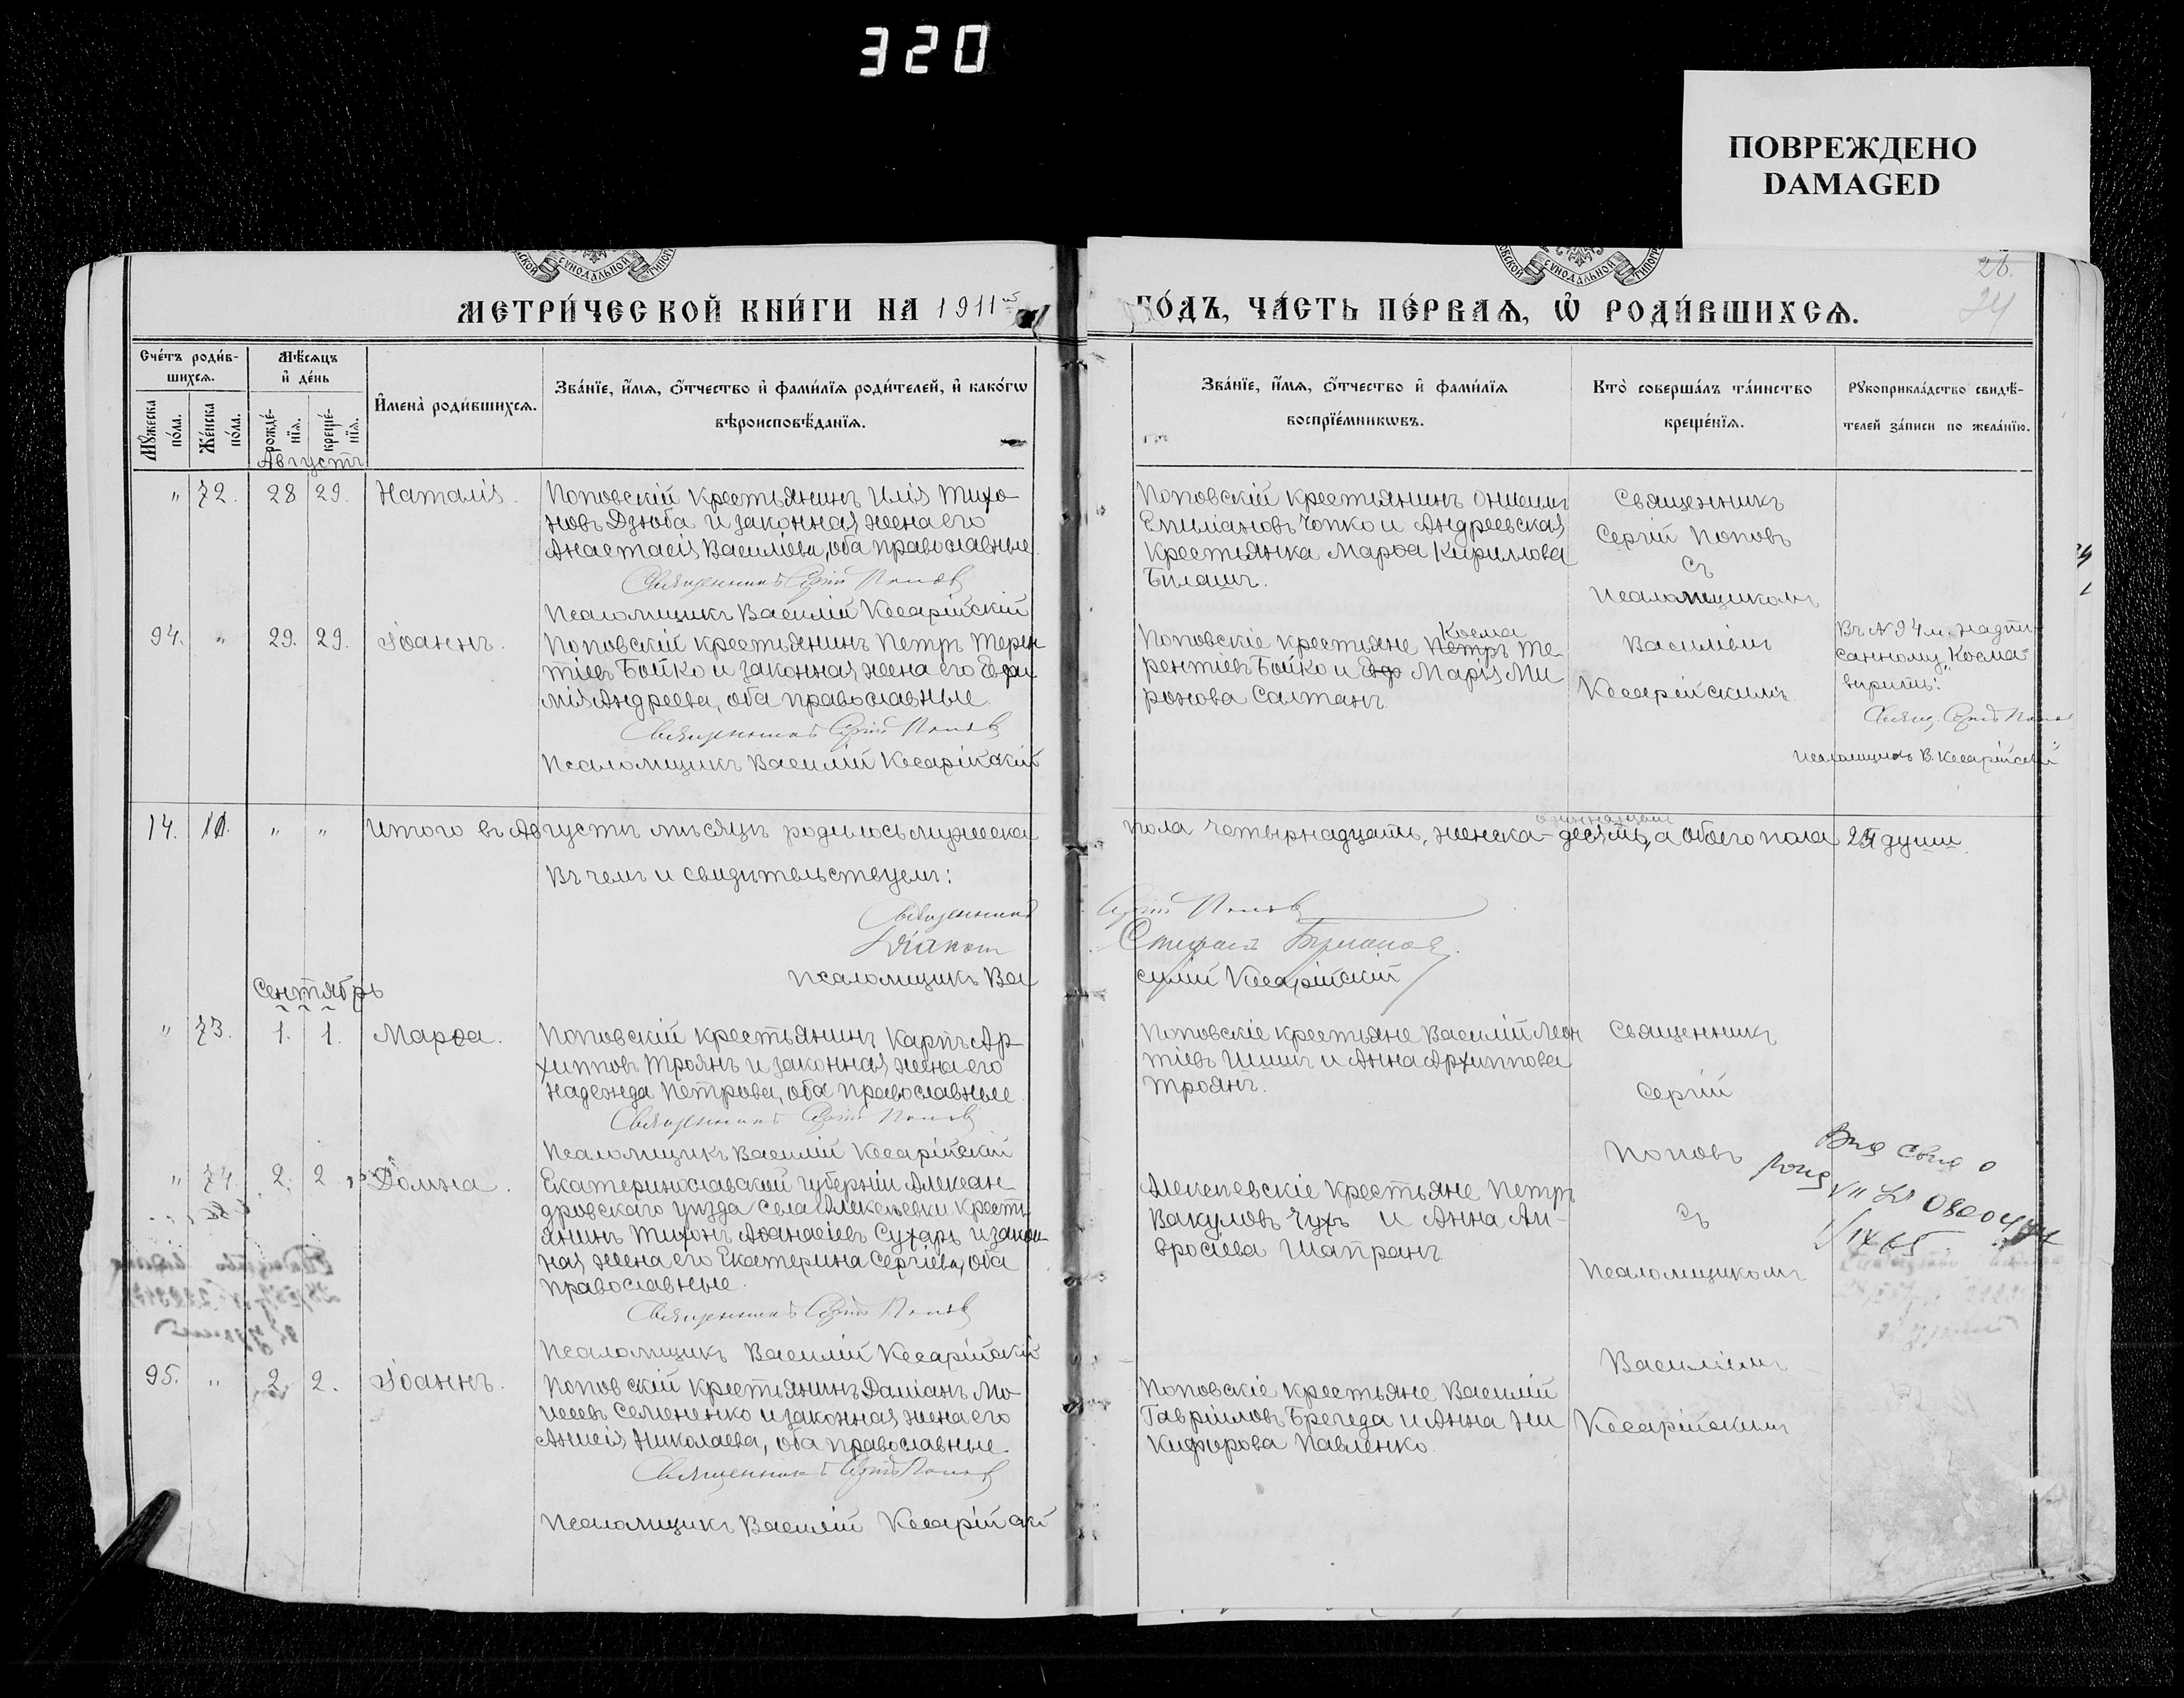 320
ПОВРЕЖДЕНО
DAMAGED
МЕТРИ́ЧЕСКОЙ КНИ́ГИ НА 1911
ГО́ДЪ, ЧА́СТЬ ПЕ́РВАѦ, Ѡ РОДИ́ВШИХСѦ.
26.
24
Сче́тъ роди́в-
шихсѧ.
Мꙋ́жеска
по́ла.
Же́нска
по́ла.
Мѣ́сѧцъ
и҆ де́нь
рожде́-
нїѧ.
креще́-
нїѧ.
И҆мена̀ роди́вшихсѧ.
Зва́нїе, и҆́мѧ, ѻ҆́тчество и҆ фами́лїѧ роди́телей, и҆ како́гѡ
вѣроисповѣ́данїѧ.
Зва́нїе, и҆́мѧ, ѻ҆́тчество и҆ фами́лїѧ
воспрїе́мникѡвъ.
Кто̀ соверша́лъ та́инство
креще́нїѧ.
Рꙋкоприкла́дство свидѣ́-
телей за́писи по жела́нїю.
Августъ
" 72. 28 29. Наталія.
Поповскій крестьянинъ Илія Тихо-
новъ Дзюба и законная жена его
Анастасія Василіева, оба православные.
Священникъ Сергій Поповъ
Псаломщикъ Василій Кесарійскій
Поповскій крестьянинъ Онисимъ
Емиліановъ Чопко и Андреевская
крестьянка Марѳа Кириллова
Билашъ.
Священникъ
Сергій Поповъ
съ
псаломщикомъ
Василіемъ
Кесарійскимъ.
94. " 29. 29. Іоаннъ.
Поповскій крестьянинъ Петръ Терен-
тіевъ Бойко и законная жена его Евфи-
мія Андреева, оба православные.
Священникъ Сергій Поповъ
Псаломщикъ Василій Кесарійскій
Косма
Поповскіе крестьяне Петръ Те-
рентіевъ Бойко и Евф Марія Ми-
ронова Салтанъ.
Въ № 94 м. надпи-
санному "Косма"
вѣрить:
Свящ. Сергій Попов
Псаломщикъ В. Кесарійскій
14. 11. " " Итого въ Августѣ мѣсяцѣ родилось мужеска
одиннадцать
пола четырнадцать, женска - десять, а обоего пола 25 души.
Въ чемъ и свидѣтельствуемъ:
Священникъ Сергій Поповъ
Діаконъ
Псаломщикъ Ва
силій Кесарійскій
Сентябрь
" 73. 1. 1. Марѳа.
Поповскій крестьянинъ Карпъ Ар-
хипповъ Троянъ и законная жена его
Надежда Петрова, оба православные.
Священникъ Сергій Поповъ
Псаломщикъ Василій Кесарійскій
Поповскіе крестьяне Василій Леон
тіевъ Шишъ и Анна Архиппова
Троянъ.
Священникъ
Сергій
Поповъ
съ
псаломщикомъ
Василіемъ
Кесарійскимъ
" 74. 2. 2. Домна.
Екатеринославской губерніи Алексан-
дровскаго уѣзда села Алексѣевки кресть-
янинъ Тихонъ Аѳанасіевъ Сухарь и закон-
ная жена его Екатерина Сергіева, оба
православные.
Священникъ Сергій Поповъ
Псаломщикъ Василій Кесарійскій
Алексѣевскіе крестьяне Петръ
Вакуловъ Чухъ и Анна Ам-
вросіева Шапранъ.
95. " 2 2. Іоаннъ.
Поповскій крестьянинъ Даміанъ Мо-
исеевъ Семененко и законная жена его
Анисія Николаева, оба православные.
Священникъ Сергій Поповъ
Псаломщикъ Василій Кесарійскій
Поповскіе крестьяне Василій
Гавріиловъ Брегеда и Анна Ни-
кифорова Павленко.